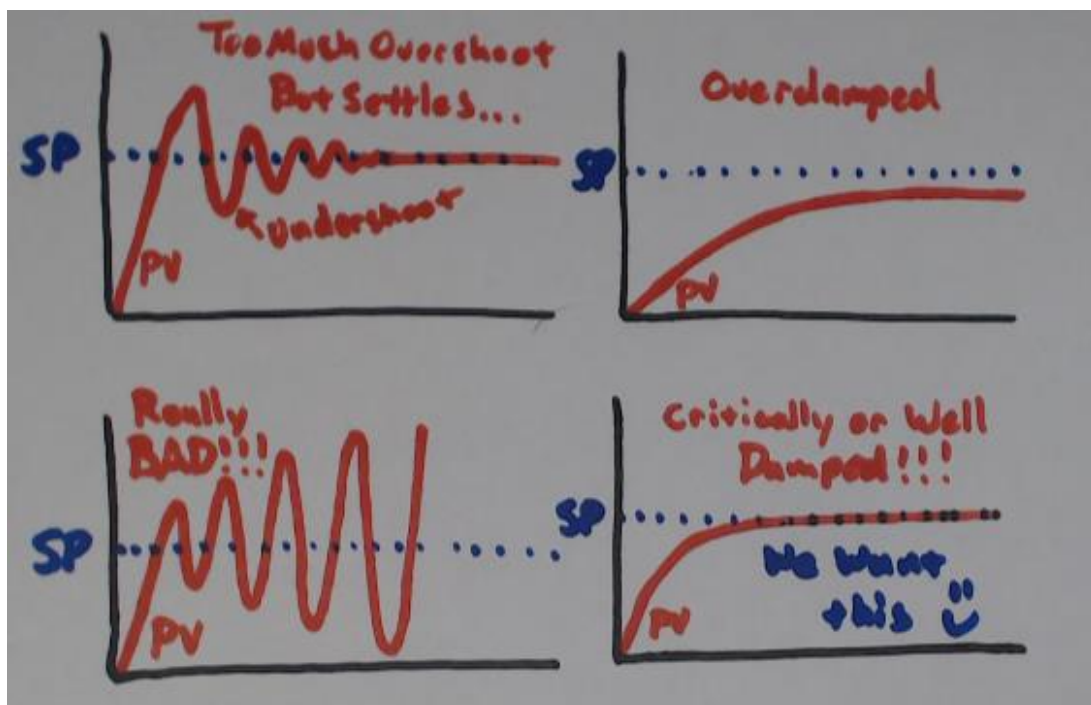 Too Much Overshoot
But Settles...
SP
undershoot
PV
Overdamped
SP
PV
Really
BAD!!!
SP
PV
Critically or Well
Damped!!!
SP
We Want
this
PV